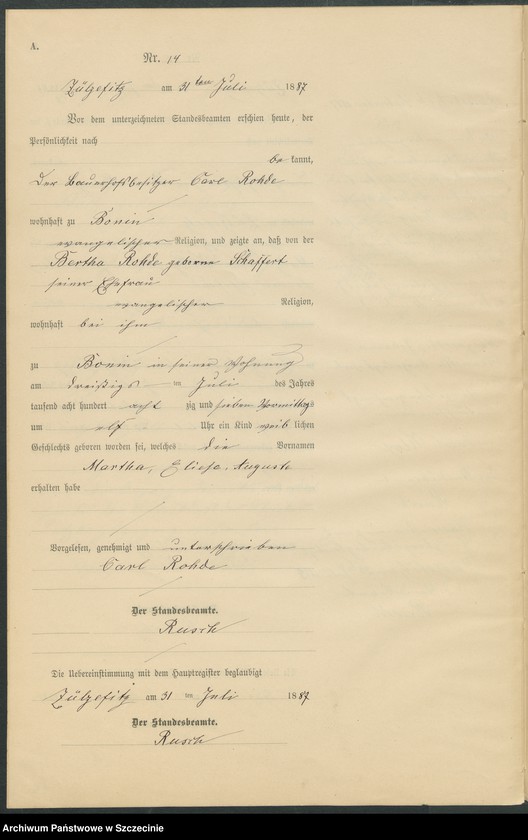 A.
Nr. 14
Zülzefitz am 31ten Juli 1887
Vor dem unterzeichneten Standesbeamten erschien heute, der
Persönlichkeit nach
be kannt,
Der Bauerhofsbesitzer Carl Rohde
wohnhaft zu Bonin
evangelischer Religion, und zeigte an, daß von der
Bertha Rohde geborne Schaffert
seiner Ehefrau
evangelischer Religion,
wohnhaft bei ihm
zu Bonin in seiner Wohnung
am dreißigs ten Juli des Jahres
tausend acht hundert acht zig und sieben Vormittags
um elf Uhr ein Kind weib lichen
Geschlechts geboren worden sei, welches die Vornamen
Martha, Eliese, Auguste
erhalten habe
Vorgelesen, genehmigt und unterschrieben
Carl Rohde
Der Standesbeamte.
Rusch
Die Uebereinstimmung mit dem Hauptregister beglaubigt
Zülzefitz am 31 ten Juli 1887
Der Standesbeamte.
Rusch
Archiwum Państwowe w Szczecinie